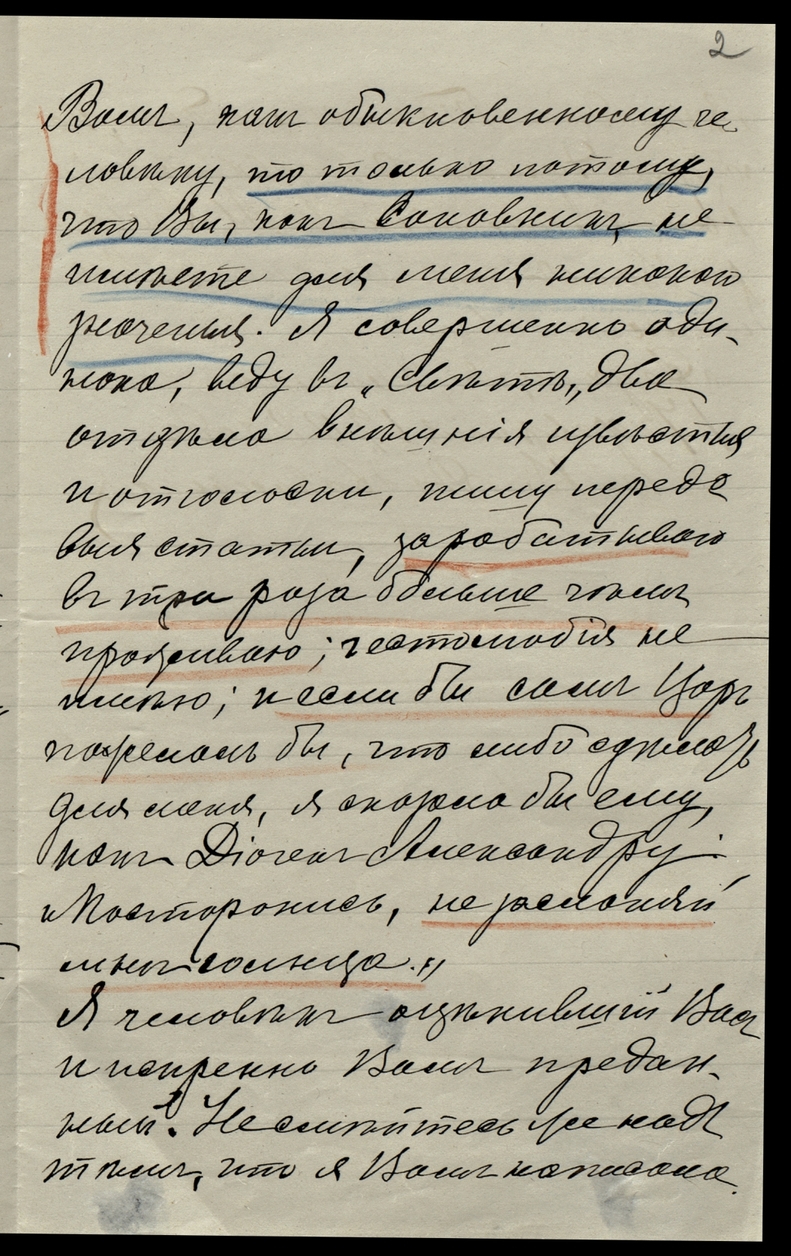 2
Вамъ, какъ обыкновенному че-
ловѣку, то только потому,
что Вы, какъ Сановникъ, не
имѣете для меня никакого
значенія. Я совершенно оди-
нока, веду въ „Свѣтѣ„ два
отдѣла внѣшнія извѣстія
и отголоски, пишу передо
выя статьи, зарабатываю
въ три раза больше чѣмъ
проживаю; честолюбія не
имѣю; и если бы самъ Царь
пожелалъ бы, что либо сдѣлать
для меня, я сказала бы ему,
какъ Діогенъ Александру:
„Посторонись, не заслоняй
мнѣ солнца.„
Я человѣкъ оцѣнившій Васъ
и искренно Вамъ предан-
ный. Не смѣйтесь же надъ
тѣмъ, что я Вамъ написала.